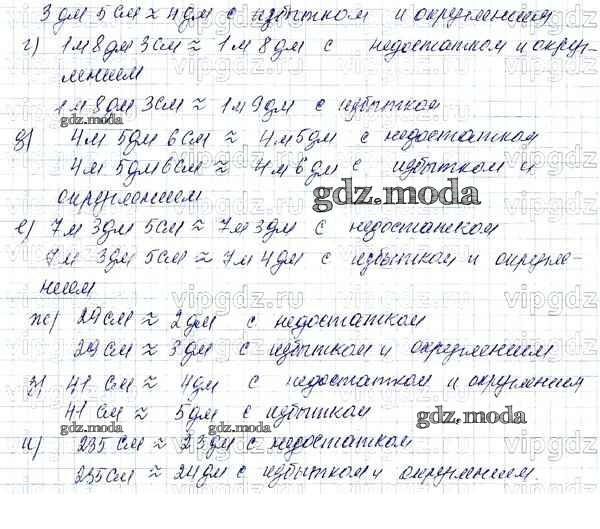 3 дм 5 см ≈ 4 дм с избытком и округлением
г) 1 м 8 дм 3 см ≈ 1 м 8 дм с недостатком и округ-
лением
1 м 8 дм 3 см ≈ 1 м 9 дм с избытком
д) 4 м 5 дм 6 см ≈ 4 м 5 дм с недостатком
4 м 5 дм 6 см ≈ 4 м 6 дм с избытком и
округлением
е) 7 м 3 дм 5 см ≈ 7 м 3 дм с недостатком
7 м 3 дм 5 см ≈ 7 м 4 дм с избытком и округле-
нием
ж) 29 см ≈ 2 дм с недостатком
29 см ≈ 3 дм с избытком и округлением
з) 41 см ≈ 4 дм с недостатком и округлением
41 см ≈ 5 дм с избытком
и) 235 см ≈ 23 дм с недостатком
235 см ≈ 24 дм с избытком и округлением.
gdz.moda
gdz.moda
gdz.moda
gdz.moda
gdz.moda
vipgdz.ru